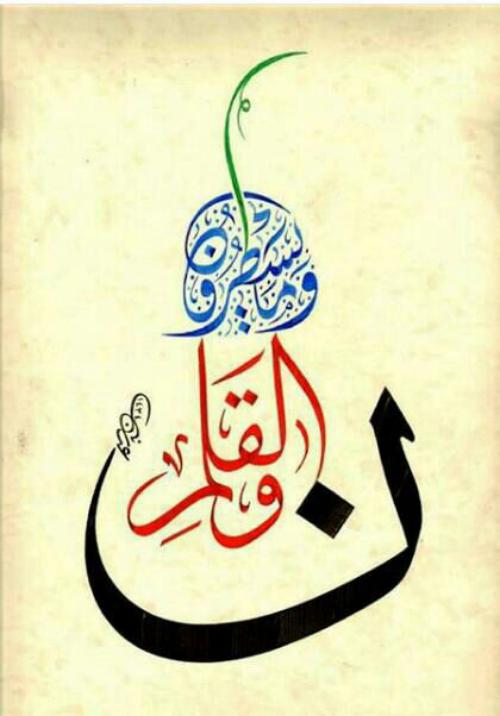 ن
والقلم
وما يسطرون